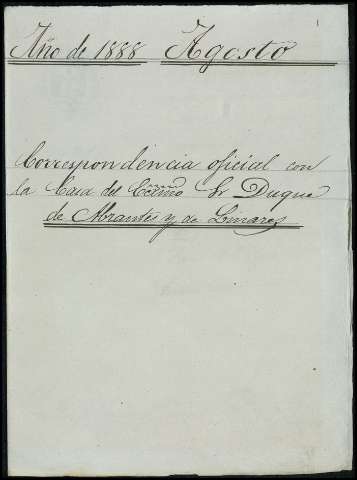 1
Año de 1888 Agosto
Correspondencia oficial con
la Casa del Ecsmo Sr Duque
de Abrantes y de Linares